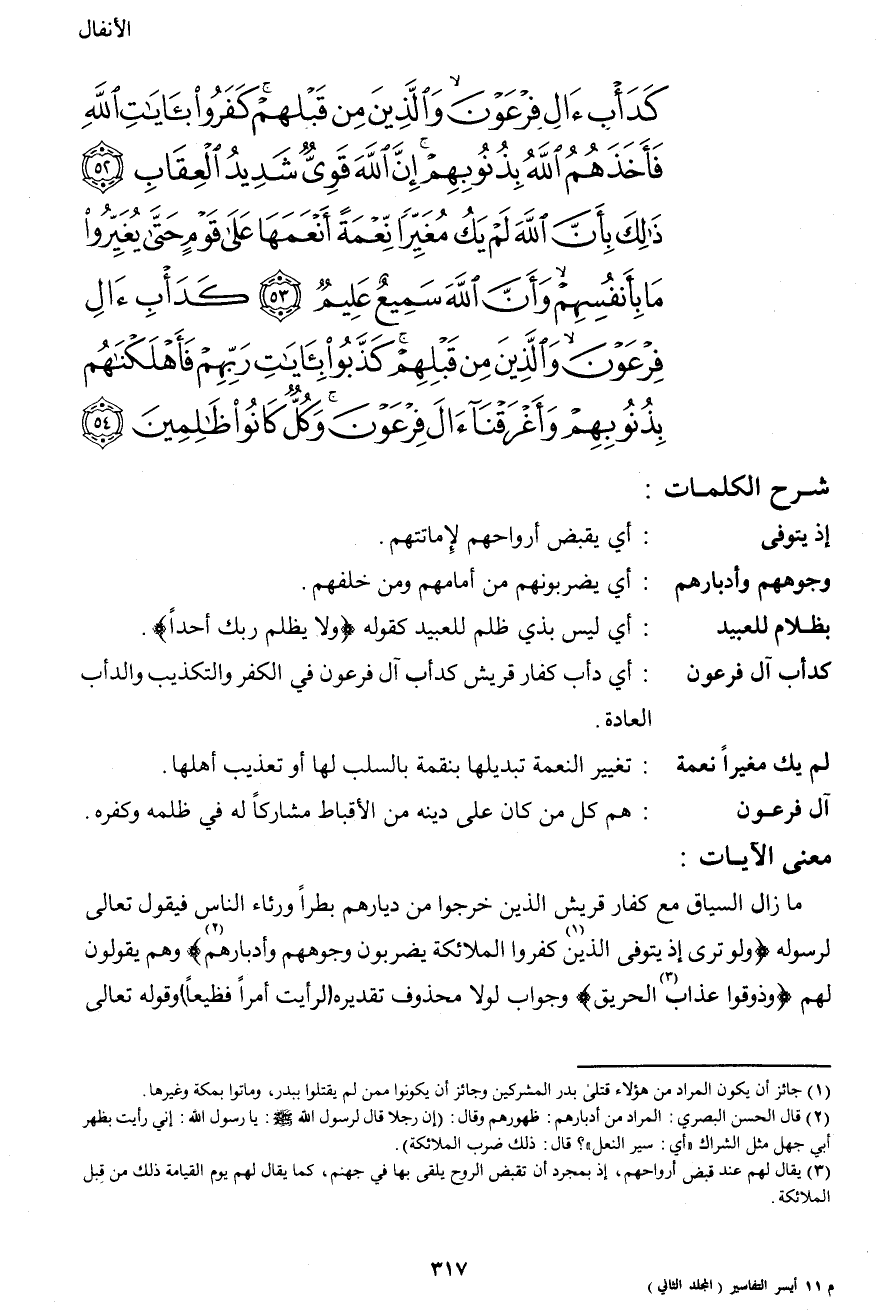 الأنفال
كَدَأْبِ ءَالِ فِرْعَوْنَ ۙ وَٱلَّذِينَ مِن قَبْلِهِمْ ۚ كَفَرُوا۟ بِـَٔايَٰتِ ٱللَّهِ
فَأَخَذَهُمُ ٱللَّهُ بِذُنُوبِهِمْ ۚ إِنَّ ٱللَّهَ قَوِىٌّ شَدِيدُ ٱلْعِقَابِ ٥٢
ذَٰلِكَ بِأَنَّ ٱللَّهَ لَمْ يَكُ مُغَيِّرًا نِّعْمَةً أَنْعَمَهَا عَلَىٰ قَوْمٍ حَتَّىٰ يُغَيِّرُوا۟
مَا بِأَنفُسِهِمْ ۙ وَأَنَّ ٱللَّهَ سَمِيعٌ عَلِيمٌ ٥٣ كَدَأْبِ ءَالِ
فِرْعَوْنَ ۙ وَٱلَّذِينَ مِن قَبْلِهِمْ ۚ كَذَّبُوا۟ بِـَٔايَٰتِ رَبِّهِمْ فَأَهْلَكْنَٰهُم
بِذُنُوبِهِمْ وَأَغْرَقْنَآ ءَالَ فِرْعَوْنَ ۚ وَكُلٌّ كَانُوا۟ ظَٰلِمِينَ ٥٤
شـرح الكلمـات :
إذ يتوفى : أي يقبض أرواحهم لإماتتهم .
وجوههم وأدبارهم : أي يضربونهم من أمامهم ومن خلفهم .
بظـلام للعبيد : أي ليس بذي ظلم للعبيد كقوله ﴿ولا يظلم ربك أحداً﴾ .
كدأب آل فرعون : أي دأب كفار قريش كدأب آل فرعون في الكفر والتكذيب والدأب
العادة .
لم يك مغيراً نعمة : تغيير النعمة تبديلها بنقمة بالسلب لها أو تعذيب أهلها .
آل فرعـون : هم كل من كان على دينه من الأقباط مشاركاً له في ظلمه وكفره .
معنى الآيـات :
ما زال السياق مع كفار قريش الذين خرجوا من ديارهم بطراً ورئاء الناس فيقول تعالى
لرسوله ﴿ولو ترى إذ يتوفى الذين(١) كفروا الملائكة يضربون وجوههم وأدبارهم(٢)﴾ وهم يقولون
لهم ﴿وذوقوا عذاب(٣) الحريق﴾ وجواب لولا محذوف تقديره(لرأيت أمراً فظيعاً)وقوله تعالى
(١) جائز أن يكون المراد من هؤلاء قتلىٰ بدر المشركين وجائز أن يكونوا ممن لم يقتلوا ببدر، وماتوا بمكة وغيرها .
(٢) قال الحسن البصري : المراد من أدبارهم : ظهورهم وقال : (إن رجلا قال لرسول الله ﷺ : يا رسول الله : إني رأيت بظهر
أبي جهل مثل الشراك «أي : سير النعل»؟ قال : ذلك ضرب الملائكة) .
(٣) يقال لهم عند قبض أرواحهم، إذ بمجرد أن تقبض الروح يلقى بها في جهنم، كما يقال لهم يوم القيامة ذلك من قِبل
الملائكة .
٣١٧
م ١١ أيسر التفاسير ( المجلد الثاني )